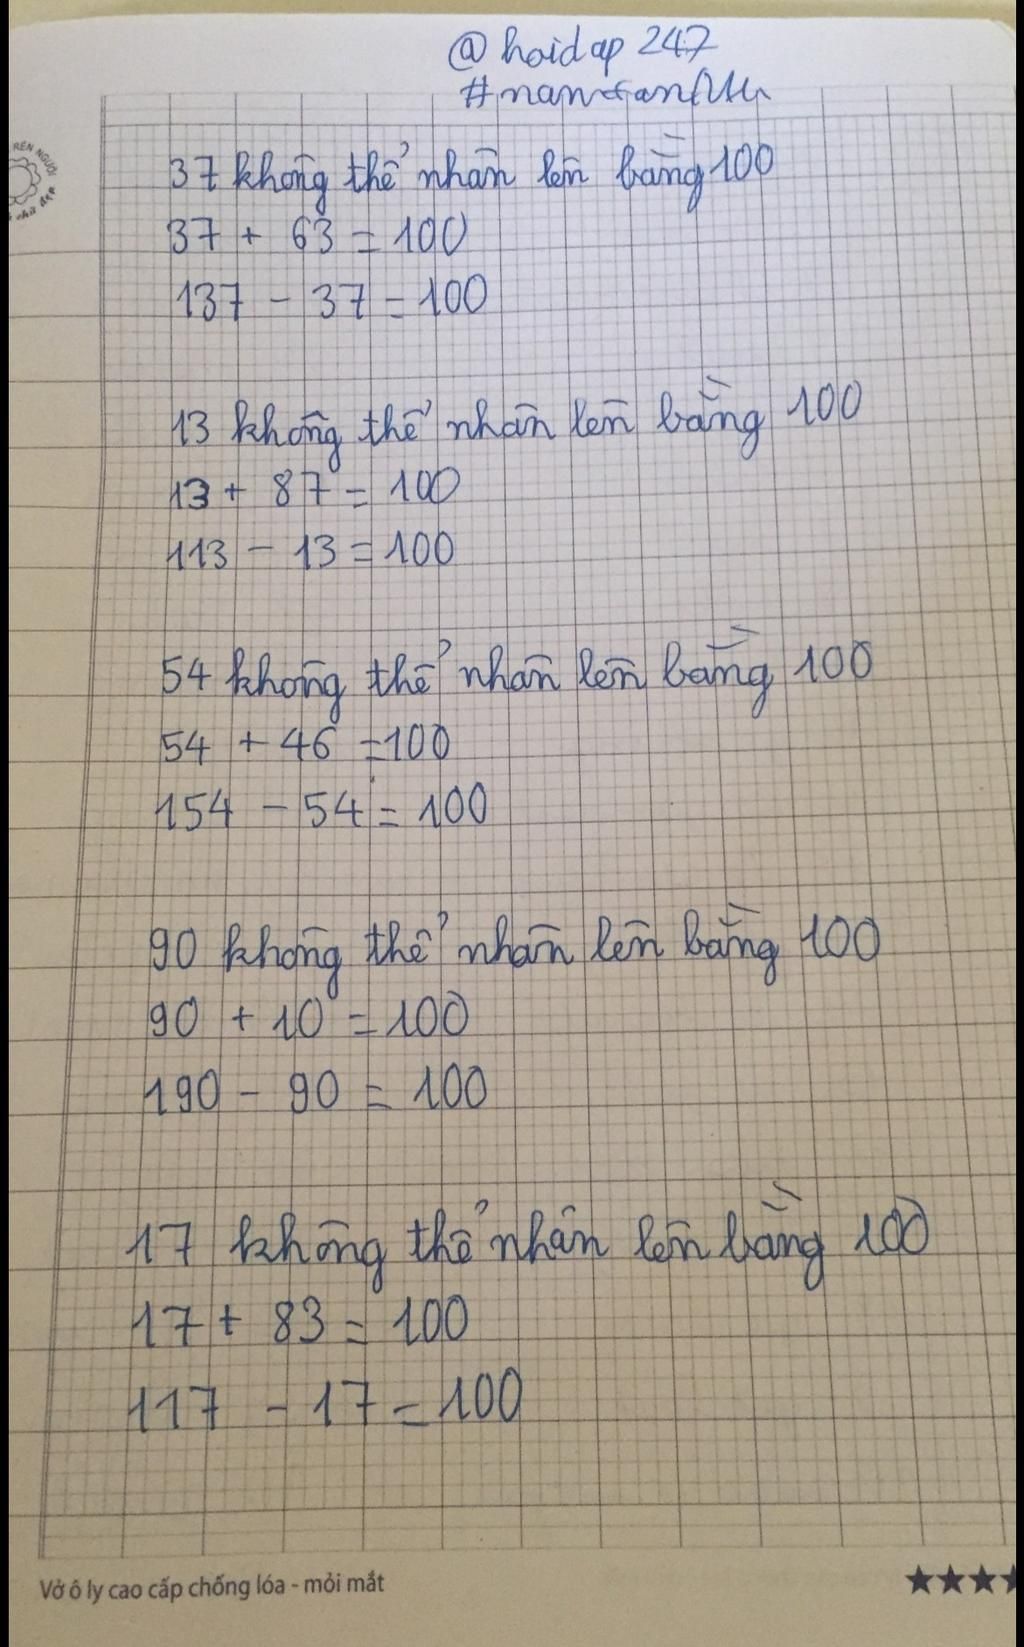 @hoidap 247
RÈN NGƯỜI
chữ đẹp
37 không thể nhân lên bằng 100
37 + 63 = 100
137 - 37 = 100
13 không thể nhân lên bằng 100
13 + 87 = 100
113 - 13 = 100
54 không thể nhân lên bằng 100
54 + 46 = 100
154 - 54 = 100
90 không thể nhân lên bằng 100
90 + 10 = 100
190 - 90 = 100
17 không thể nhân lên bằng 100
17 + 83 = 100
117 - 17 = 100
Vở ô ly cao cấp chống lóa - mỏi mắt